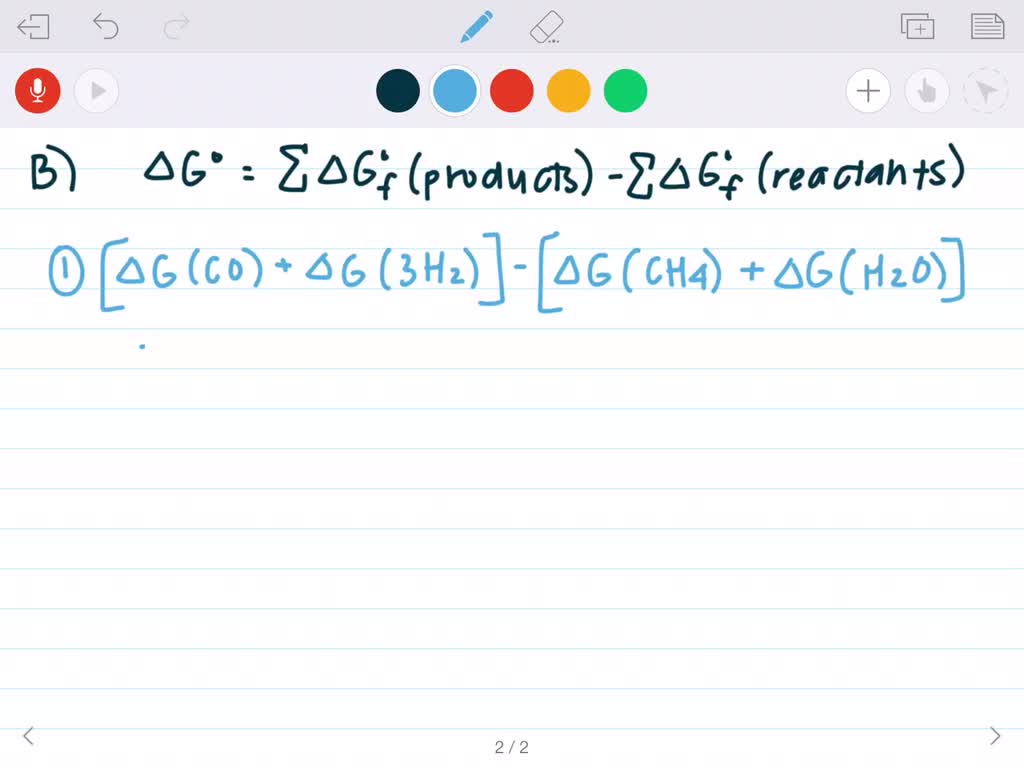 B) ΔG° = ∑ΔG°f (products) - ∑ΔG°f (reactants)
① [ΔG(CO) + ΔG(3H2)] - [ΔG(CH4) + ΔG(H2O)]
2 / 2